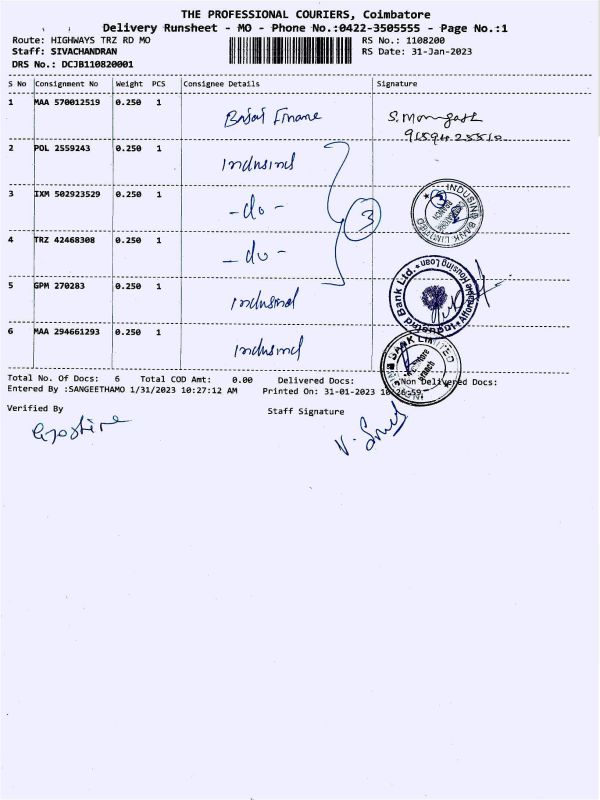 THE PROFESSIONAL COURIERS, Coimbatore
Delivery Runsheet - MO - Phone No.:0422-3505555 - Page No.:1
Route: HIGHWAYS TRZ RD MO RS No.: 1108200
Staff: SIVACHANDRAN RS Date: 31-Jan-2023
DRS No.: DCJB110820001
S No Consignment No Weight PCS Consignee Details Signature
1 MAA 570012519 0.250 1 Bajaj Finance
2 POL 2559243 0.250 1 Indusind
3 IXM 502923529 0.250 1 -do- 3
4 TRZ 42468308 0.250 1 -do-
5 GPM 270283 0.250 1 Indusind
6 MAA 294661293 0.250 1 Indusind
INDUSIND BANK LIMITED
IndusInd Bank Ltd. Affordable Housing Loan
BANK LIMITED
Total No. Of Docs: 6 Total COD Amt: 0.00 Delivered Docs: Non Delivered Docs:
Entered By :SANGEETHAMO 1/31/2023 10:27:12 AM Printed On: 31-01-2023 10:26:59
Verified By Staff Signature